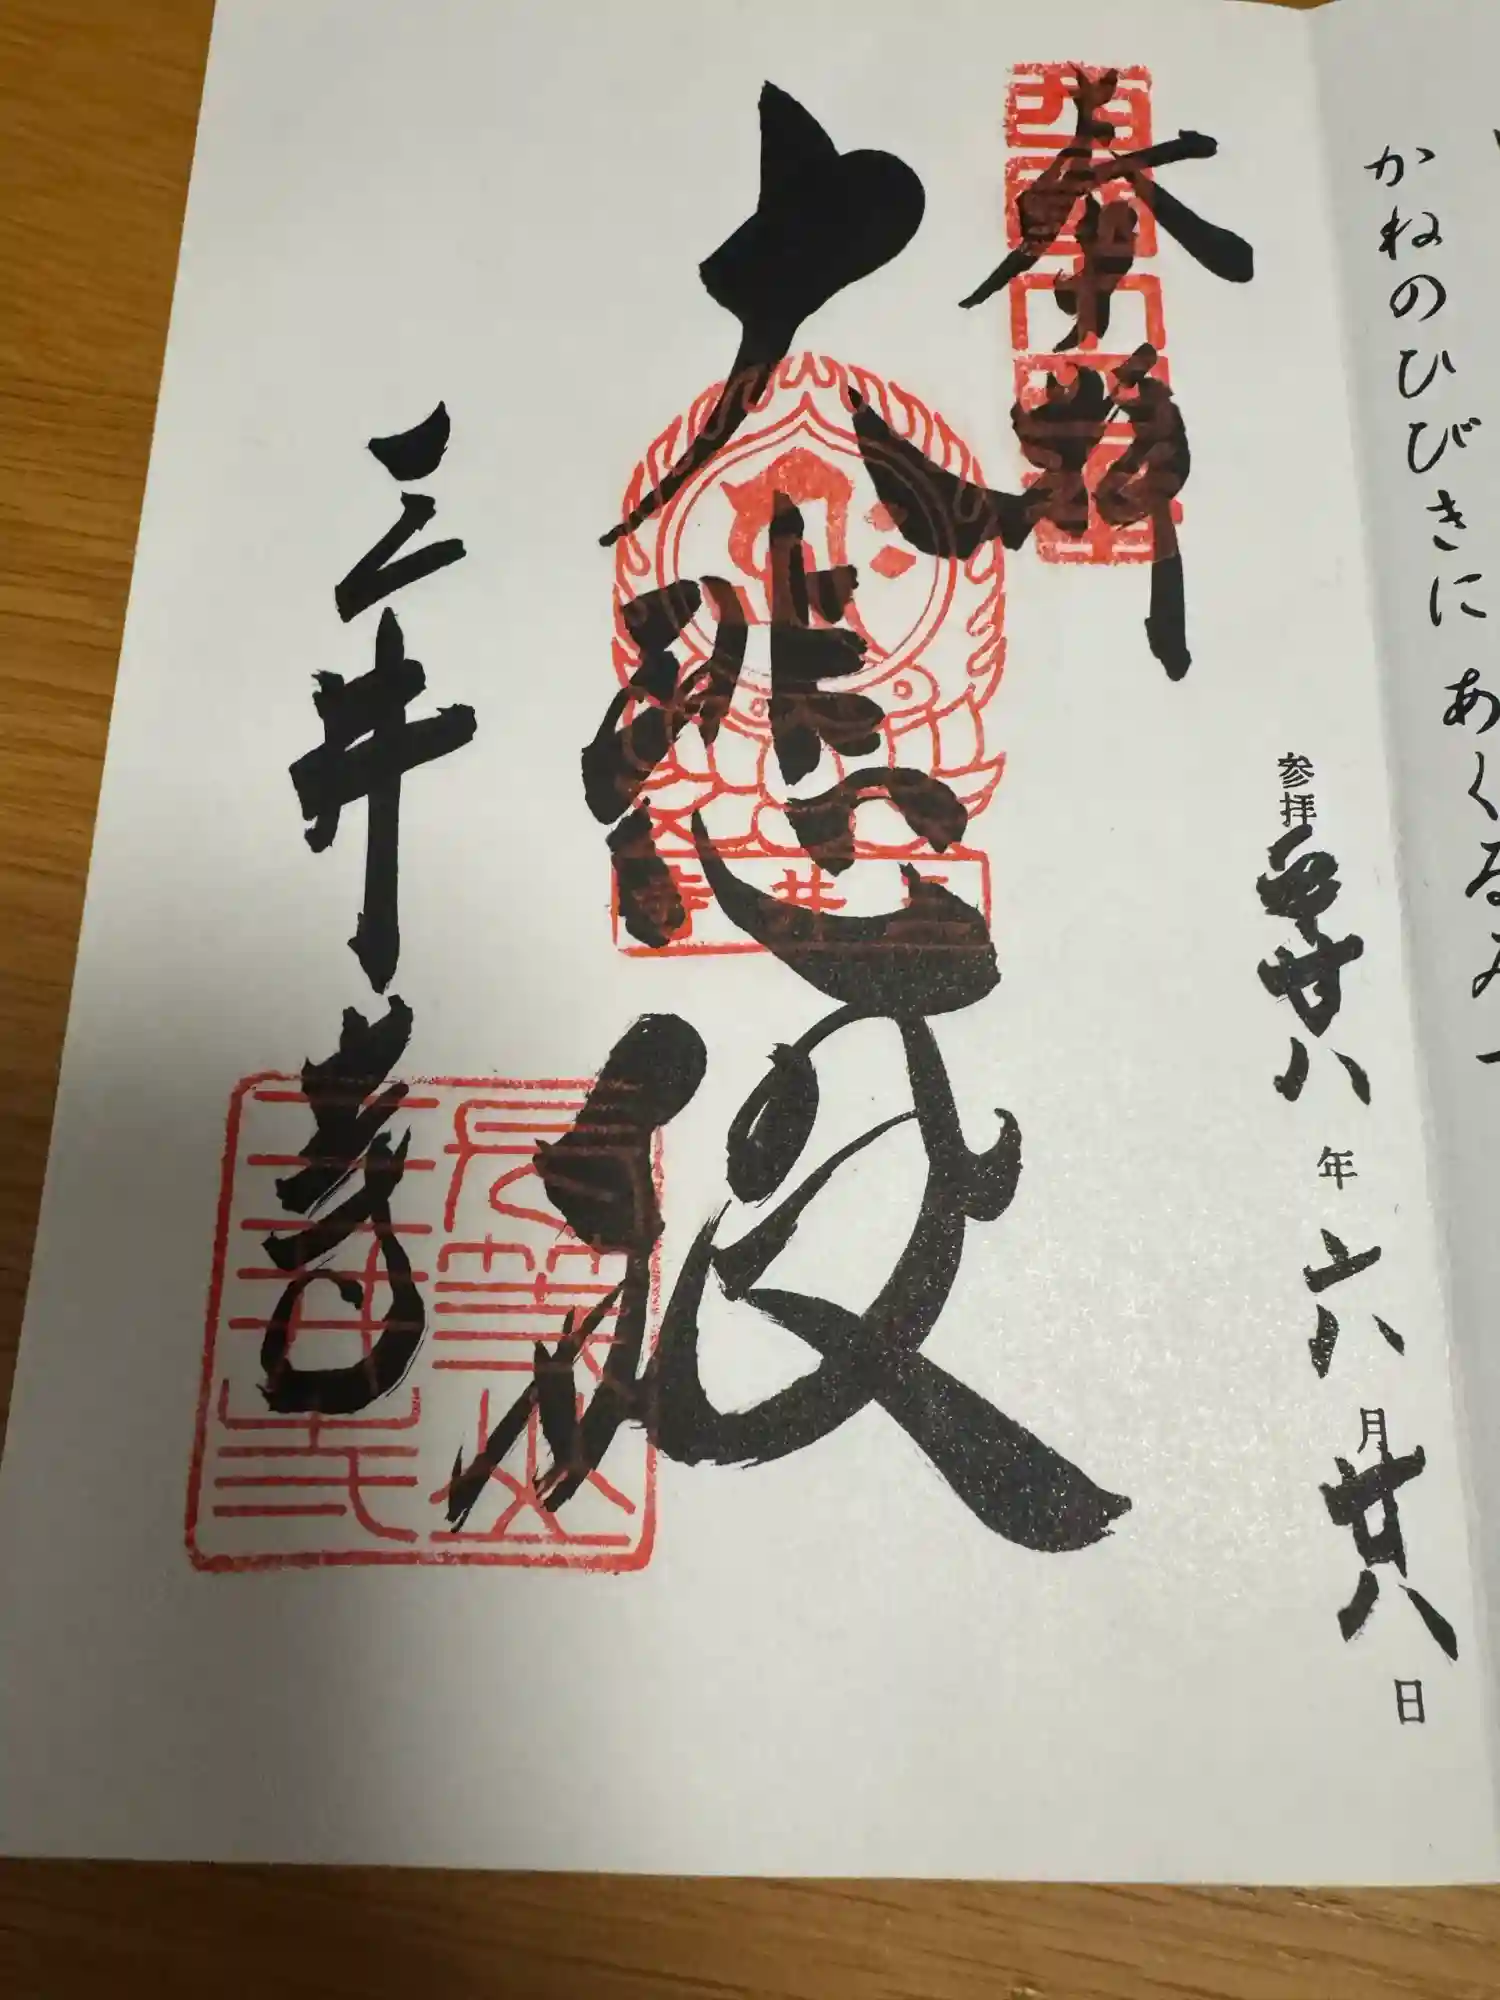 かねのひびきに あくるみ
参拝 平廿八年六月廿八日
奉拝
大悲殿
三井寺
三井寺